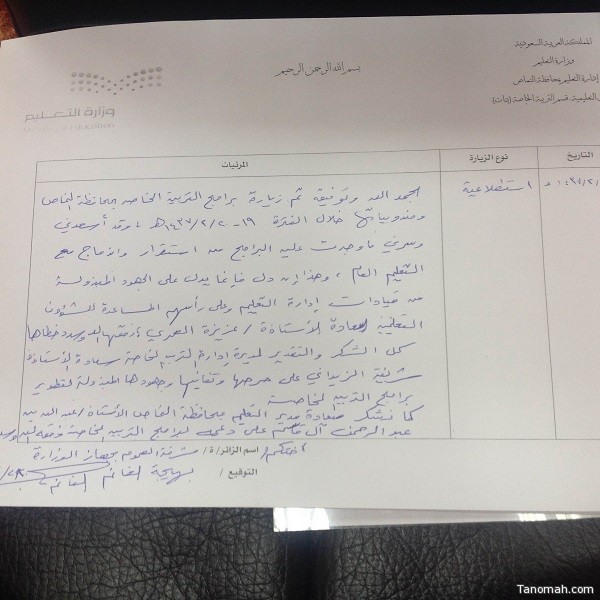 المملكة العربية السعودية
وزارة التعليم
إدارة التعليم بمحافظة النماص
التعليمية قسم التربية الخاصة (بنات)
بسم الله الرحمن الرحيم
وزارة التعليم
Ministry of Education
التاريخ
نوع الزيارة
المرئيات
استطلاعية
الحمد لله وتوفيقه تم زيارة برامج التربية الخاصه بمحافظة النماص
ومندوبياتها خلال الفترة ١٩-١٤٣٧/٢/٢٠هـ، وقد أسعدني
وسرني ما وجدت عليه البرامج من استقرار واندماج مع
التعليم العام، وهذا إن دل فإنما يدل على الجهود المبذولة
من قيادات إدارة التعليم وعلى رأسهم المساعدة للشؤون
التعليمية سعادة الأستاذة / عزيزة العمري وسدد خطاها
كل الشكر والتقدير لمديرة إدارة التربية الخاصة سعادة الأستاذة
شريفة الزيداني على حرصها وتفانيها وجهودها المبذولة لتطوير
برامج التربية الخاصة
كما نشكر سعادة مدير التعليم بمحافظة النماص الأستاذ / عبدالله بن
عبدالرحمن آل قاسم على دعمه لبرامج التربية الخاصة وفقه الله
اسم الزائر/ة / مشرفة العموم بجهاز الوزارة
التوقيع / بهيجة
Tanomah.com